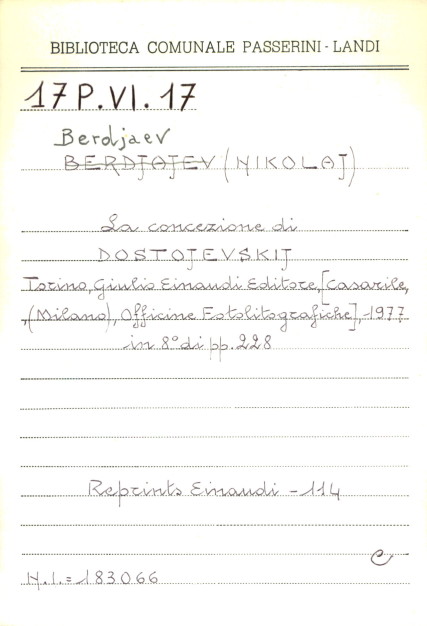 BIBLIOTECA COMUNALE PASSERINI - LANDI
17 P.VI.17
Berdjaev
BERDJAJEV (NIKOLAJ)
La concezione di
DOSTOJEVSKIJ
Torino, Giulio Einaudi Editore, [Casarile,
,(Milano), Officine Fotolitografiche], 1977
in 8° di pp. 228
Reprints Einaudi - 114
C
N.I. = 183066